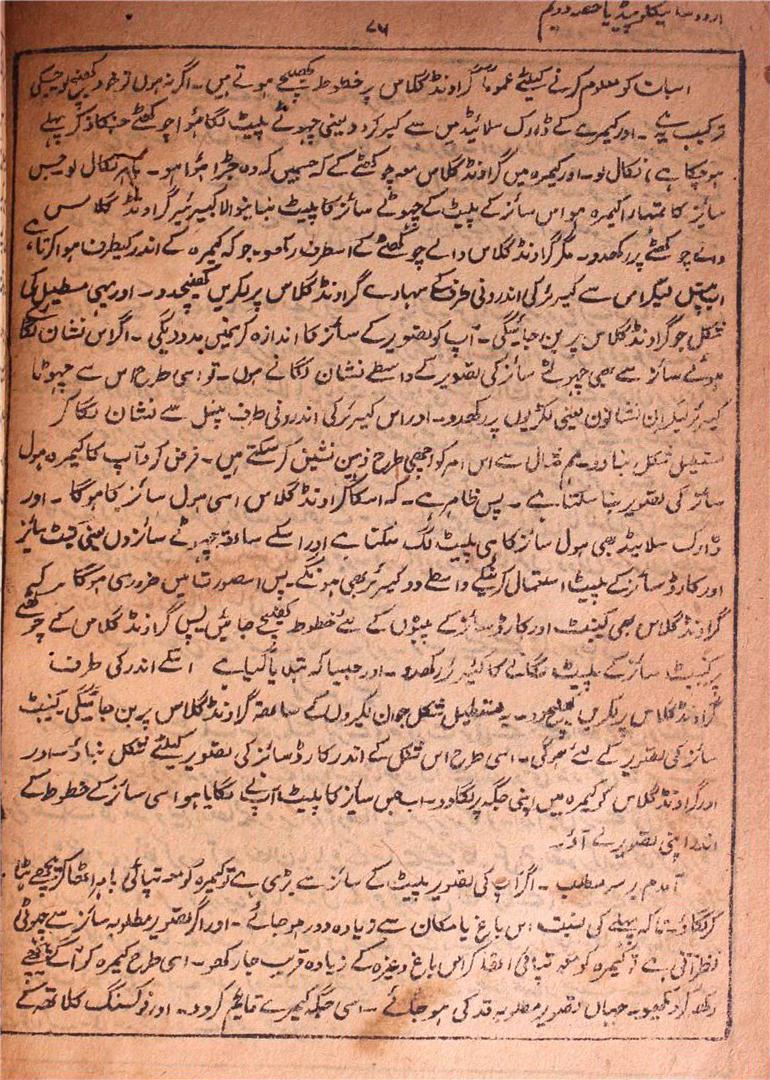 اردو سائیکلوپیڈیا حصہ دویم
۷۵
اسبات کو معلوم کرنے کیلئے عموماً گراونڈ گلاس پر خطوط کھینچے ہوتے ہیں۔ اگر نہ ہوں تو خود کھینچ لو جسکی
ترکیب یہ ہے۔ اور کیمرے کے ڈارک سلائیڈ میں سے کیرئر (یعنی چھوٹے پلیٹ لگا ہوا چوکھٹے جنکا ذکر پہلے
ہو چکا ہے) نکال لو۔ اور کیمرہ میں گراونڈ گلاس معہ چوکھٹے کے کہ جسمیں کہ وہ جڑا ہوا ہو۔ باہر نکال لو جس
سائز کا تمہارا کیمرہ ہو اس سائز کے پلیٹ کے چھوٹے سائز کا پلیٹ بنانیوالا کیرئیر گراونڈ گلاس
والے چوکھٹے پر رکھدو۔ مگر گراونڈ گلاس والے چوکھٹے کے اسطرف رکھو۔ جو کہ کیمرہ کے اندر کیطرف ہوا کرتا ہے
اب پنسل لیکر اس سے کیرئر کی اندرونی طرف کے سہارے گراونڈ گلاس پر لکیریں کھینچدو۔ اور یہی مستطیل کی
شکل جو گراونڈ گلاس پر بن جائیگی۔ آپ کو تصویر کے سائز کا اندازہ کرنیمیں مدد دیگی۔ اگر اس نشان لگا
ہوئے سائز سے بھی چھوٹے سائز کی تصویر کے واسطے نشان لگانے ہوں۔ تو اسی طرح اس سے چھوٹا
کیرئر لیکر ان نشانوں یعنی لکڑیوں پر رکھدو۔ اور اس کیرئر کی اندرونی طرف پنسل سے نشان لگا کر
مستطیل شکل بنا دو۔ ہم مثال سے اس امر کو اچھی طرح ذہن نشین کر سکتے ہیں۔ فرض کرو آپ کا کیمرہ ہول
سائز کی تصویر بنا سکتا ہے۔ پس ظاہر ہے۔ کہ اسکا گراونڈ گلاس اسی ہول سائز کا ہوگا۔ اور
ڈارک سلائیڈ بھی ہول سائز کا ہی پلیٹ لگ سکتا ہے اور اسکے ساتھ چھوٹے سائزوں یعنی کیبنٹ سائز
اور کارڈ سائز کے پلیٹ استعمال کرنیکے واسطے دو کیرئر بھی ہونگے۔ پس اس صورت میں ضروری ہوگا کہ
گراونڈ گلاس بھی کیبنٹ اور کارڈ سائز کے پلیٹوں کے لئے خطوط کھینچے جائیں۔ پس گراونڈ گلاس کے چوکھٹے
پر کیبنٹ سائز کے پلیٹ لگانے کا کیرئر رکھدو۔ اور جیسا کہ بتلایا گیا ہے اسکے اندر کی طرف
گراونڈ گلاس پر لکیریں کھینچدو۔ یہ مستطیل شکل جو ان لکیروں کے ساتھ گراونڈ گلاس پر بن جائیگی کیبنٹ
سائز کی تصویر کے لئے ہوگی۔ اسی طرح اس شکل کے اندر کارڈ سائز کی تصویر کیلئے شکل بناؤ۔ اور
اور گراونڈ گلاس کو کیمرہ میں اپنی جگہ پر لگا دو۔ اب جس سایز کا پلیٹ آپنے لگایا ہو اسی سائز کے خطوط کے
اندر اپنی تصویر لے آؤ۔
آمدم بر سر مطلب۔ اگر آپ کی تصویر پلیٹ کے سائز سے بڑی ہے تو کیمرہ کو معہ تپائی باہر اٹھا کر پیچھے ہٹا
کر لگاؤ۔ تاکہ پہلے کی نسبت اس باغ یا مکان سے زیادہ دور ہو جائے۔ اور اگر تصویر مطلوبہ سائز سے چھوٹی
نظر آتی ہے تو کیمرہ کو معہ تپائی اٹھا کر اس باغ وغیرہ کے زیادہ قریب جا رکھو۔ اسی طرح کیمرہ کو آگے پیچھے
رکھ کر دیکھو۔ جہاں تصویر مطلوبہ قد کی ہو جائے۔ اسی جگہ کیمرے قایم کر دو۔ اور فوکسنگ کلاتھ کے